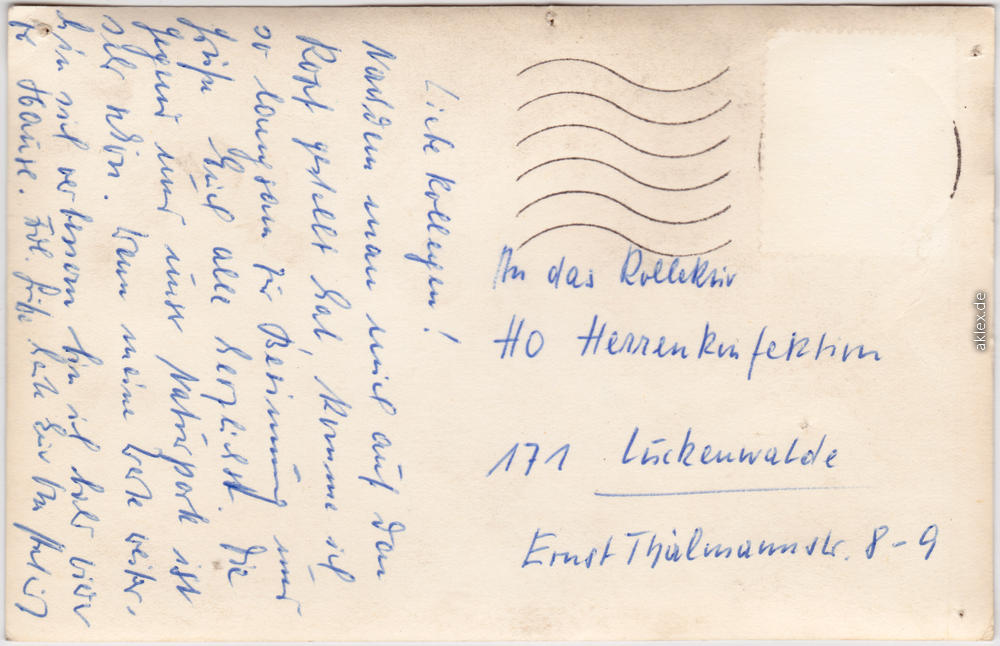 Liebe Kollegen!
Nachdem man mich auf den
Kopf gestellt hat, komme ich
so langsam zur Besinnung und
grüße Euch alle herzlichst. Die
Gegend und unser Naturpark ist
sehr schön. Wenn meine Werte weiter
hin sich verbessern bin ich bald wieder
zu Hause.
An das Kollektiv
HO Herrenkonfektion
171 Luckenwalde
Ernst Thälmannstr. 8-9
aklex.de